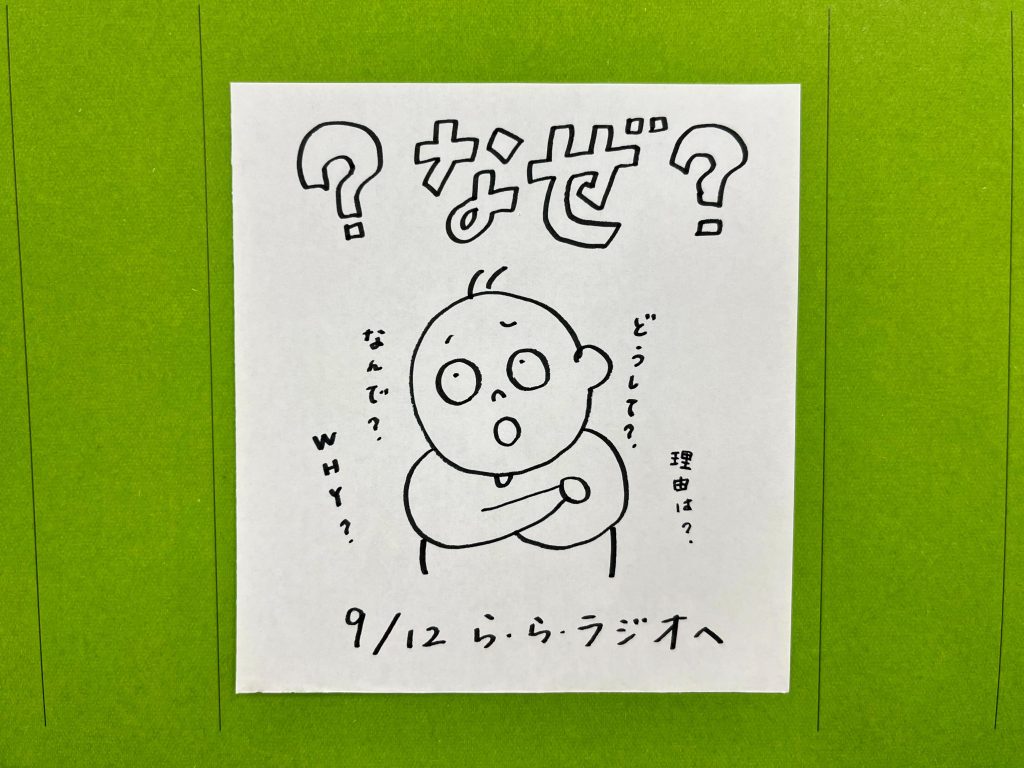 ?なぜ?
なんで?
どうして?
WHY?
理由は?
9/12 ら・ら・ラジオへ